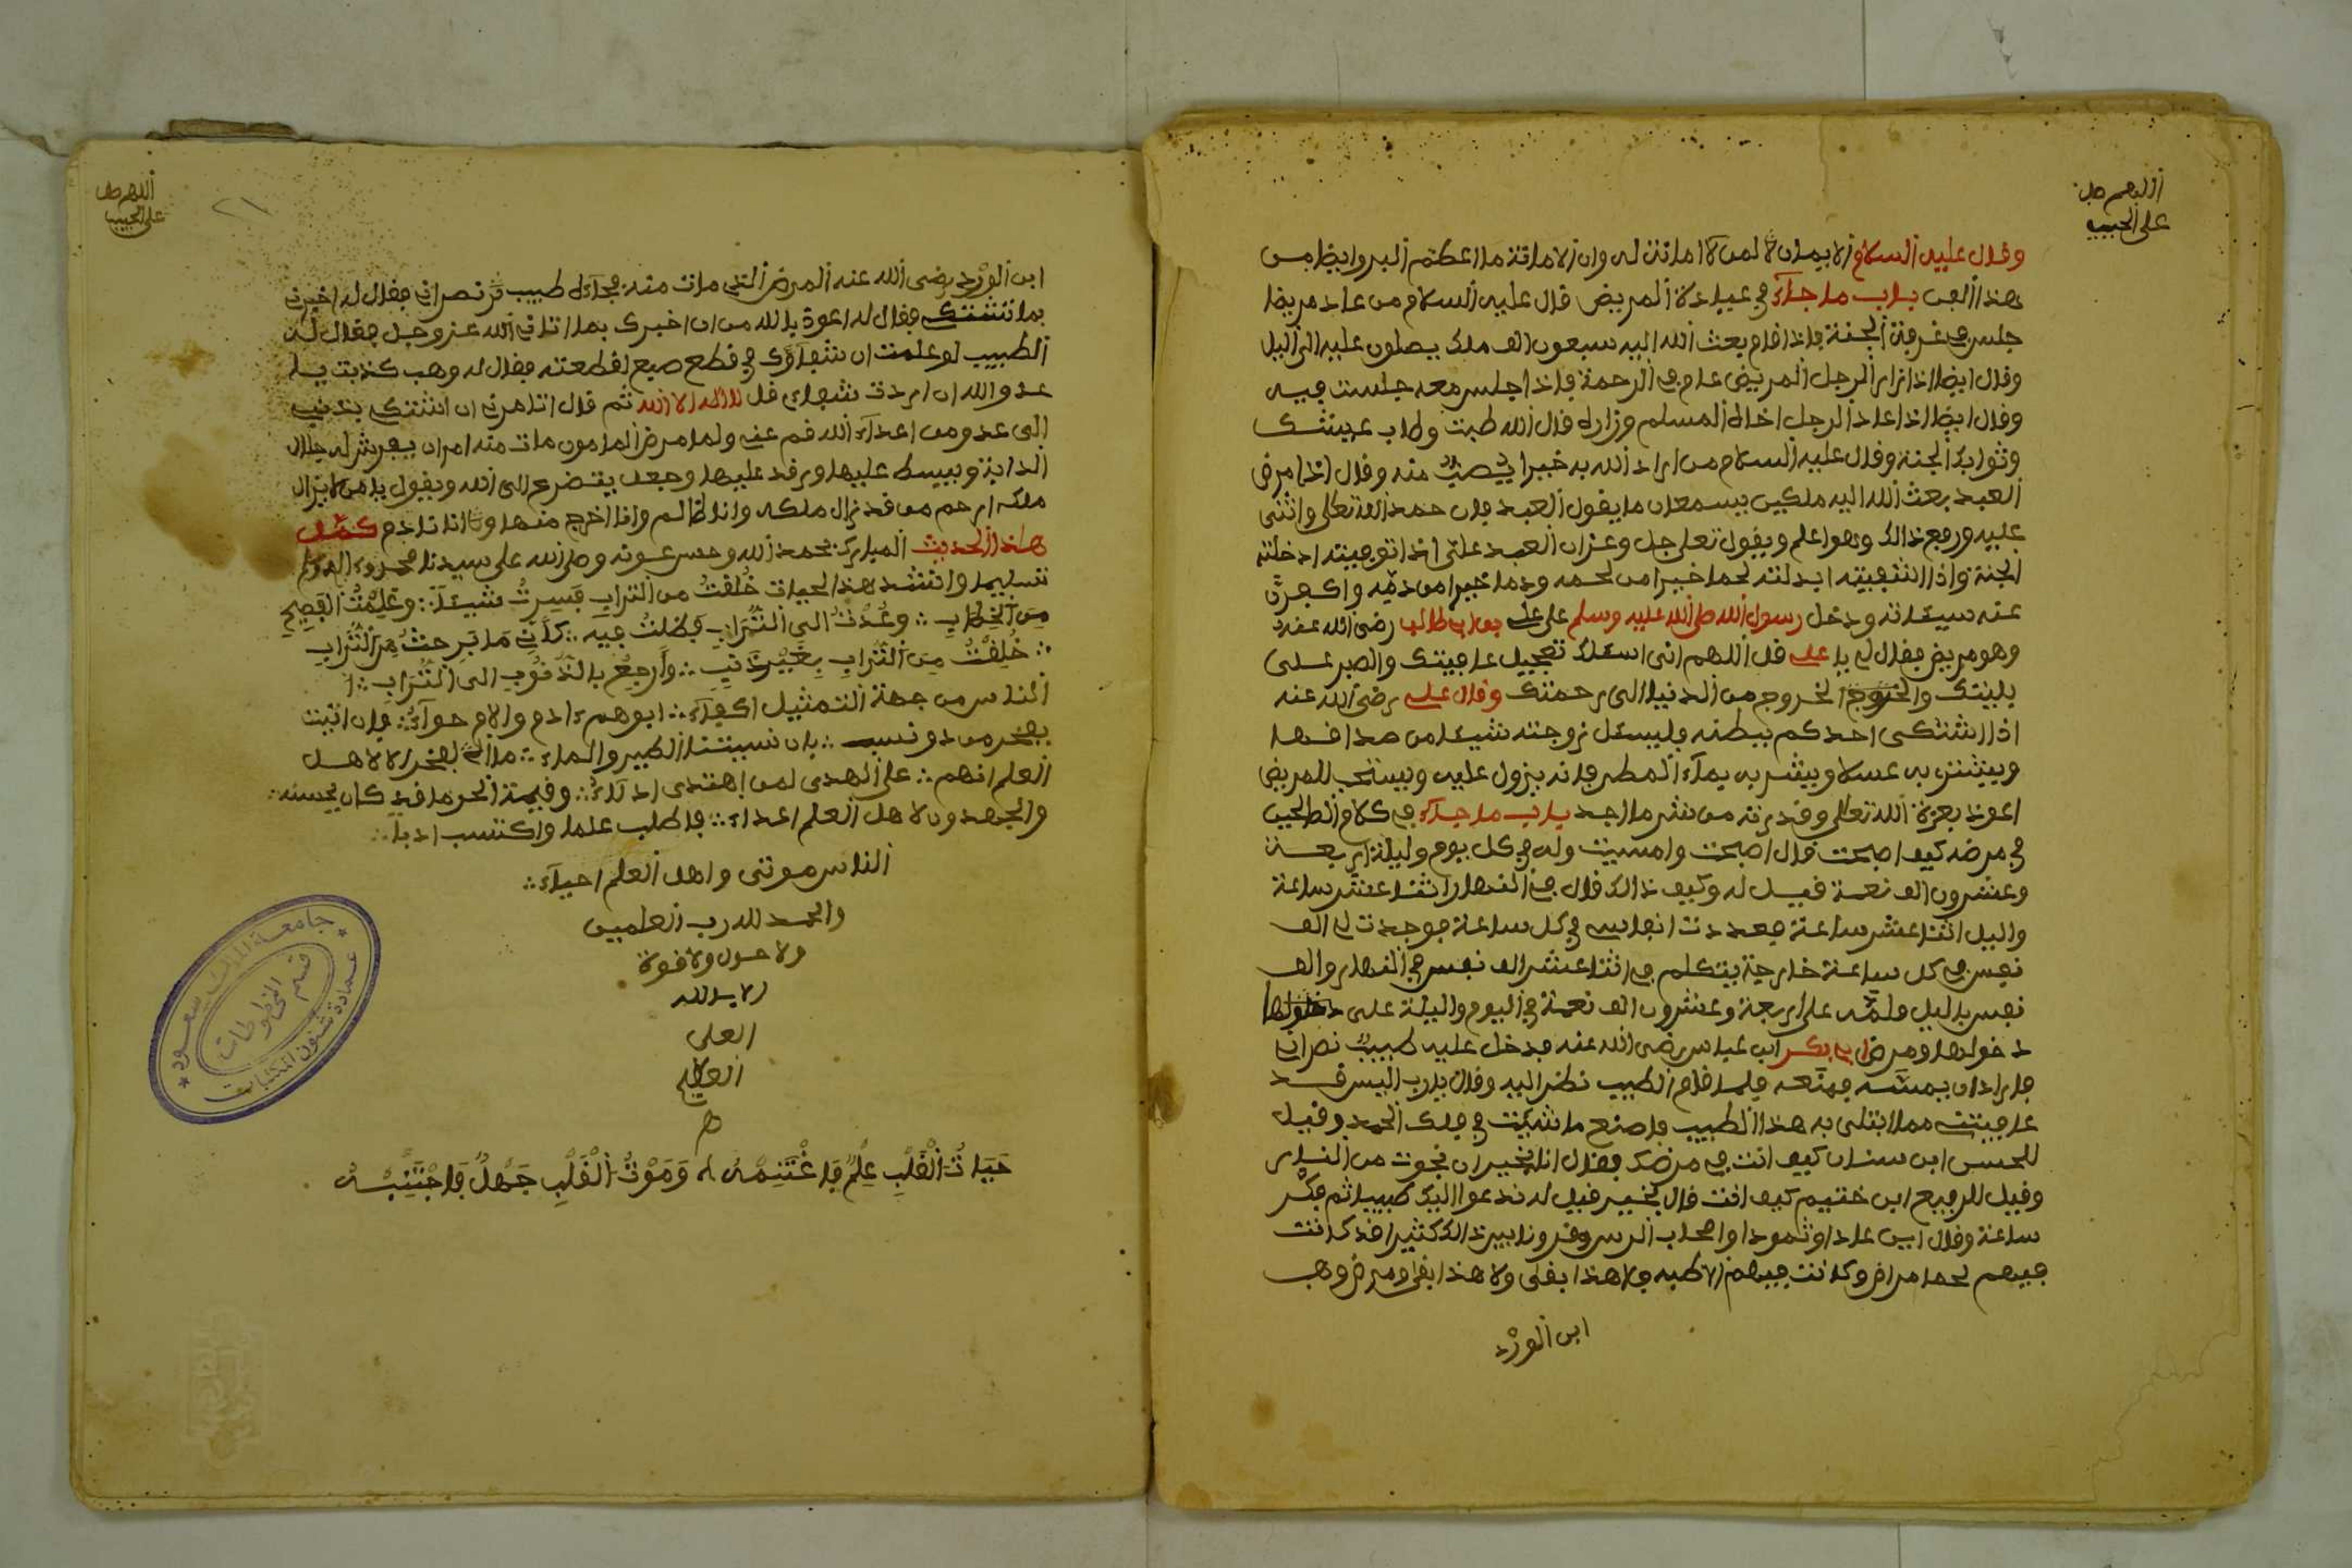 اللهم صل
على الحبيب
وقال عليه السلام لا يمان لا لمن لا امانت له وان الامانة ما اعظم البر وايضا من
هذا الب باب ما جآء في عيادة المريض قال عليه السلام من عاد مريضا
جلس في غرفة الجنة فاذا قام بعث الله اليه سبعون الف ملك يصلون عليه الى اليل
وقال ايضا اذا زار الرجل المريض عام في الرحمة فاذا جلس معه جلست فيه
وقال ايضا اذا عاد الرجل اخاه المسلم وزاره قال الله طبت وطاب عيشك
وثوابك الجنة وقال عليه السلام من اراد الله به خيرا يصب منه وقال اذا مرض
العبد بعث الله اليه ملكين يسمعان ما يقول العبد فان حمد الله تعلى واثنى
عليه ورجع ذالك وهو اعلم ويقول تعلى جل وعز ان العبد علي اذا توفيته ادخلته
الجنة واذا اشفيته ابدلته لحما خيرا من لحمه ودما خيرا من دمه واكفرت
عنه سيئاته ودخل رسول الله صلى الله عليه وسلم على علي بن ابي طالب رضي الله عنه
وهو مريض فقال له يا علي قل اللهم اني اسئلك تعجيل عافيتك والصبر على
بليتك والخروج من الدنيا الى رحمتك وقال علي رضي الله عنه
اذا اشتكى احدكم ببطنه فليسئل زوجته شيئا من صداقها
ويشتر به عسلا ويشربه بمآء المطر فانه يزول عليه ويستحب للمريض
اعوذ بعزة الله تعالى وقدرته من شر ما اجد باب ما جآء في كلام الصالحين
في مرضه كيف اصبحت قال اصبحت وامسيت وله في كل يوم وليلة اربعة
وعشرون الف نعمة قيل له وكيف ذالك قال في النهار اثنا عشر ساعة
واليل اثنا عشر ساعة فعددت انفاسي في كل ساعة فوجدت لي الف
نفس في كل ساعة خارجة يتكلم في اثنا عشر الف نفس في النهار والف
نفس بليل فلله على اربعة وعشرون الف نعمة في اليوم والليلة على
دخولها ومرض ابي بكر ابن عباس رضي الله عنه فدخل عليه طبيب نصراني
فاراد ان يمسه فمنعه فلما قام الطبيب نظر اليه وقال يا رب اليس قد
عافيتني مما ابتلى به هذا الطبيب فاصنع ما شيئت في فلك الحمد وقيل
للحسن ابن سنان كيف انت في مرضك فقال انا بخير ان نجوت من النار
وقيل للربيع ابن خثيم كيف انت قال بخير قيل له ندعوا اليك طبيبا ثم فكر
ساعة وقال اين عادا وثمودا واصحاب الرس وقرونا بين ذالك كثيرا قد كانت
فيهم لهما مراض وكانت فيهم الاطبه فلا هذا بقى ولا هذا بقى ومرض وهب
ابن الورد
اللهم صل
على الحبيب
٢١
ابن الورد رضي الله عنه المرض التي مات منه فجآءه طبيب نصراني فقال له اخبرني
بما تشتكي فقال له اعوذ بالله من ان اخبرك بما اتاني الله عز وجل فقال له
الطبيب لو علمت ان شفاؤك في قطع صبع لقطعته فقال له وهب كذبت يا
عدو الله ان اردت شفاءي قل لا اله الا الله ثم قال اتامرني ان اشتكي بذنبي
الى عدو من اعداء الله قم عني ولما مرض المامون مات منه امر ان يفرش له جلال
الدابة ويبسط عليها ورقد عليها وجعل يتضرع الى الله ويقول يا من لا يزال
ملكه ارحم من قد زال ملكه وانا ظالم وانا اخرج منها وانا نادم كمل
هذا الحديث المبارك بحمد الله وحسن عونه وصلى الله على سيدنا محمد وءاله وسلم
تسليما وانشد هذا الحيات خُلقتُ من التراب فسِرتُ شيئا ∴ وعَلِمْتُ الفصيح
من الخطاب ∴ وعُدْتُ الى التُّراب فظلتُ فيه ∴ كأني ما برحتُ من التُّراب
∴ خُلِقْتُ من التُّراب بغير ذنبٍ ∴ وأرجعُ بالذُّنُوب الى التُّراب ∴
الناس من جهة التمثيل اكفآء ∴ ابوهم ءادم والام حوآء ∴ فان اتيت
بفخر من ذو نسب ∴ فان نسبتنا الطين والماء ∴ ما الفخر الا لاهل
العلم انهم ∴ على الهدى لمن اهتدى ادلاء ∴ وقيمة الحر ما قد كان يحسنه ∴
والجهدون لاهل العلم اعداء ∴ فاطلب علما واكتسب ادبا ∴
الناس موتى واهل العلم احيآء ∴
والحمد لله رب العلمين
ولا حول ولا قوة
الا بالله
العلي
العظيم
ه
حَيَاتُ الْقَلْبِ عِلْمٌ فَاغْتَنِمْهُ وَمَوْتُ الْقَلْبِ جَهْلٌ فَاجْتَنِبْهُ
جامعة الملك سعود
قسم المخطوطات
عمادة شئون المكتبات